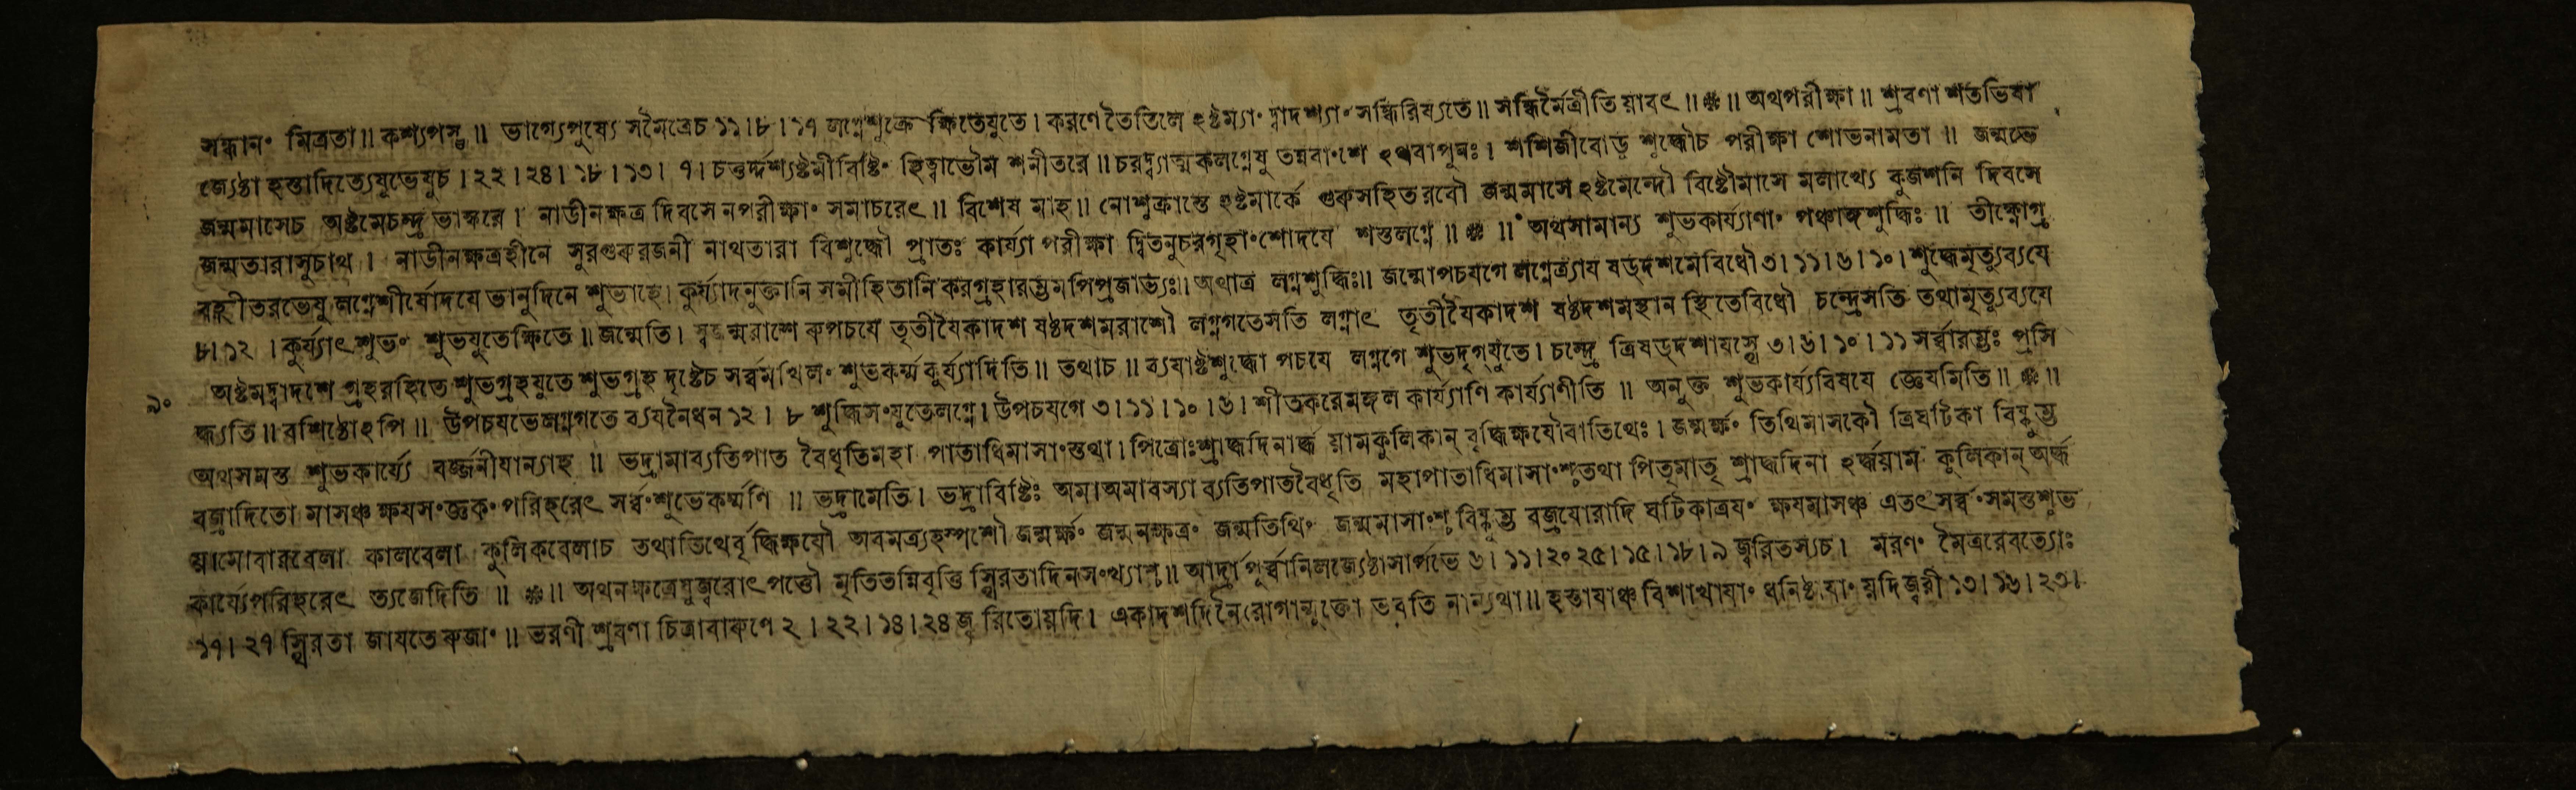 সন্ধানং মিত্রতা॥ কশ্যপস্তু॥ ভাগ্যেপুষ্যে সমৈত্রেচ ১১।৮।১৭ লগ্নেশুক্রে ক্ষিতেযুতে। করণে তৈতিলে ঽষ্টম্যাং দ্বাদশ্যাং সন্ধিরিষ্যতে॥ সন্ধির্মৈত্রীতি য়াবৎ॥ ॥ অথপরীক্ষা॥ শ্রবণা শতভিষা
জ্যেষ্ঠা হস্তাদিত্যেষুভেষুচ।২২।২৪।১৮।১৩।৭। চতুর্দ্দশ্যষ্টমীবিষ্টিং হিত্বাভৌম শনীতরে॥ চরদ্ব্যাত্মকলগ্নেষু তন্নবাংশে ঽথবাপুনঃ। শশিজীবোডু শুদ্ধৌচ পরীক্ষা শোভনামতা॥ জন্মভে
জন্মমাসেচ অষ্টমেচন্দ্র ভাস্করে। নাডীনক্ষত্র দিবসে নপরীক্ষাং সমাচরেৎ॥ বিশেষ মাহ॥ নোশুক্রাস্তে ঽষ্টমার্কে গুরুসহিতরবৌ জন্মমাসে ঽষ্টমেন্দৌ বিষ্টৌমাসে মলাখ্যে কুজশনি দিবসে
জন্মতারাসুচাথ। নাডীনক্ষত্রহীনে সুরগুরুরজনী নাথতারা বিশুদ্ধৌ প্রাতঃ কার্য্যা পরীক্ষা দ্বিতনুচরগৃহাংশোদযে শস্তলগ্নে॥ ॥ অথসামান্য শুভকার্য্যাণাং পঞ্চাঙ্গশুদ্ধিঃ॥ তীক্ষ্ণোগ্র
বহ্নীতরভেষু লগ্নেশীর্ষোদযে ভানুদিনে শুভাহে। কুর্য্যাদনুক্তানি সমীহিতানি করগ্রহারম্ভমপি॥ অথাত্র লগ্নশুদ্ধিঃ॥ জন্মোপচযগে লগ্নেত্র্যায ষড্দশমেবিধৌ ৩।১১।৬।১০। শুদ্ধেমৃত্যুব্যযে
৮।১২। কুর্য্যাৎ শুভং শুভযুতেক্ষিতে॥ জন্মেতি। স্বজন্মরাশে রুপচযে তৃতীযৈকাদশ ষষ্ঠদশমরাশৌ লগ্নগতেসতি লগ্নাৎ তৃতীযৈকাদশ ষষ্ঠদশমস্থান স্থিতেবিধৌ চন্দ্রেসতি তথামৃত্যুব্যযে
৯০ অষ্টমদ্বাদশে গ্রহরহিতে শুভগ্রহযুতে শুভগ্রহ দৃষ্টেচ সর্ব্বমখিলং শুভকর্ম্ম কুর্য্যাদিতি॥ তথাচ॥ ব্যযাষ্টশুদ্ধো পচযে লগ্নগে শুভদৃগ্যুতে। চন্দ্রে ত্রিষড্দশাযস্থে ৩।৬।১০।১১ সর্ব্বারম্ভঃ প্রসি
দ্ধ্যতি॥ বশিষ্ঠোঽপি॥ উপচযভেলগ্নগতে ব্যযনৈধন ১২। ৮ শুদ্ধিসংযুতেলগ্নে। উপচযগে ৩।১১।১০।৬। শীতকরেমঙ্গল কার্য্যাণি কার্য্যাণীতি॥ অনুক্ত শুভকার্য্যবিষযে জ্ঞেযমিতি॥ ॥
অথসমস্ত শুভকার্য্যে বর্জ্জনীযান্যাহ॥ ভদ্রামাব্যতিপাত বৈধৃতিমহা পাতাধিমাসাংস্তথা। পিত্রোঃশ্রাদ্ধদিনার্দ্ধ য়ামকুলিকান্ বৃদ্ধিক্ষযৌবাতিথেঃ। জন্মর্ক্ষং তিথিমাসকৌ ত্রিঘটিকা বিষ্কুম্ভ
বজ্রাদিতো মাসঞ্চ ক্ষযসংজ্ঞকং পরিহরেৎ সর্ব্বং শুভেকর্ম্মণি॥ ভদ্রামেতি। ভদ্রাবিষ্টিঃ অমাঅমাবস্যা ব্যতিপাতবৈধৃতি মহাপাতাধিমাসাংশ্চতথা পিতৃমাতৃ শ্রাদ্ধদিনা ঽর্দ্ধয়াম কুলিকান্ অর্দ্ধ
য়ামোবারবেলা কালবেলা কুলিকবেলাচ তথাতিথের্বৃদ্ধিক্ষযৌ অবমত্র্যহস্পর্শৌ জন্মর্ক্ষং জন্মনক্ষত্রং জন্মতিথিং জন্মমাসাংশ্চ বিষ্কুম্ভ বজ্রযোরাদি ঘটিকাত্রযং ক্ষযমাসঞ্চ এতৎ সর্ব্বং সমস্তশুভ
কার্য্যেপরিহরেৎ ত্যজেদিতি॥ ॥ অথনক্ষত্রেষুজ্বরোৎপত্তৌ মৃতিতন্নিবৃত্তি স্থিরতাদিনসংখ্যাঞ্চ॥ আর্দ্রা পূর্ব্বানিলজ্যেষ্ঠাসার্পভে ৬।১১।২০ ২৫।১৫।১৮।৯ জ্বরিতস্যচ। মরণং মৈত্ররেবত্যোঃ
১৭। ২৭ স্থিরতা জাযতে রুজাং॥ ভরণী শ্রবণা চিত্রাবারুণে ২।২২।১৪।২৪ জ্বরিতোয়দি। একাদশদিনৈরোগান্মুক্তো ভবতি নান্যথা॥ হস্তাযাঞ্চ বিশাখাযাং ধনিষ্ঠাযাং য়দিজ্বরী ১৩।১৬।২৩।